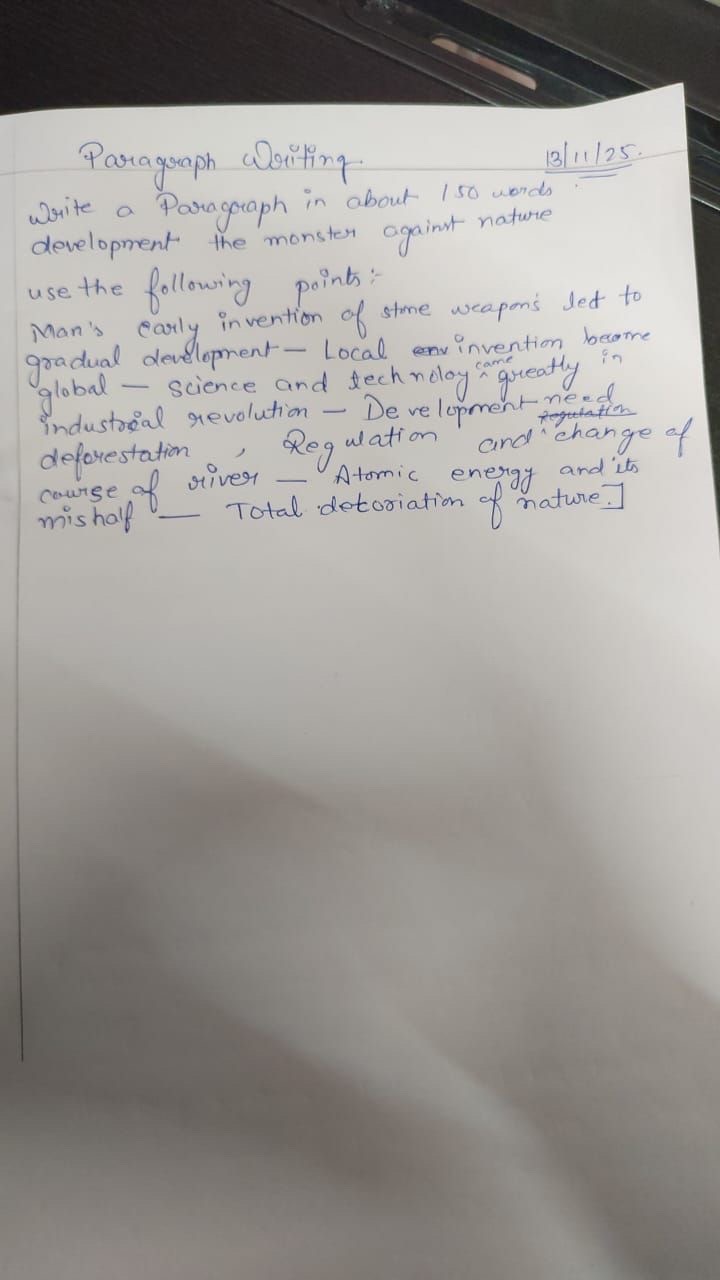 Paragraph Writing
13/11/25.
Write a Paragraph in about 150 words
development the monster against nature
use the following points :-
Man's early invention of stone weapons led to
gradual development — Local invention become
global — science and technoloy came greatly in
industrial revolution — Development need
deforestation , Regulation and change of
course of river — Atomic energy and its
mishalf — Total detoriation of nature.]